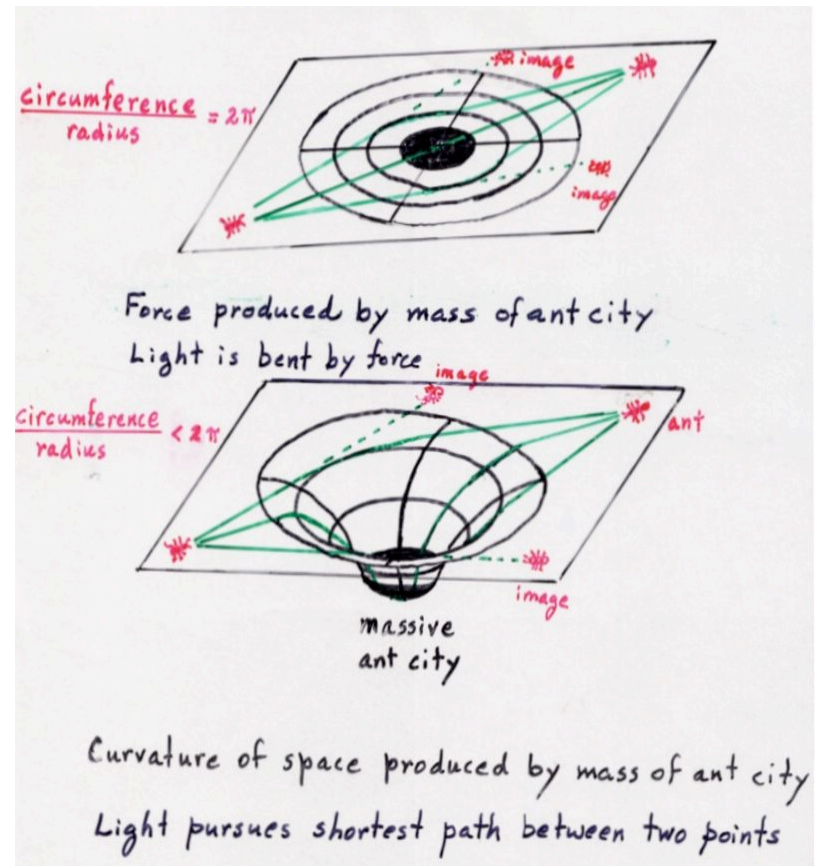 image
circumference
radius
= 2π
image
Force produced by mass of ant city
Light is bent by force
image
circumference
radius
< 2π
ant
image
massive
ant city
Curvature of space produced by mass of ant city
Light pursues shortest path between two points